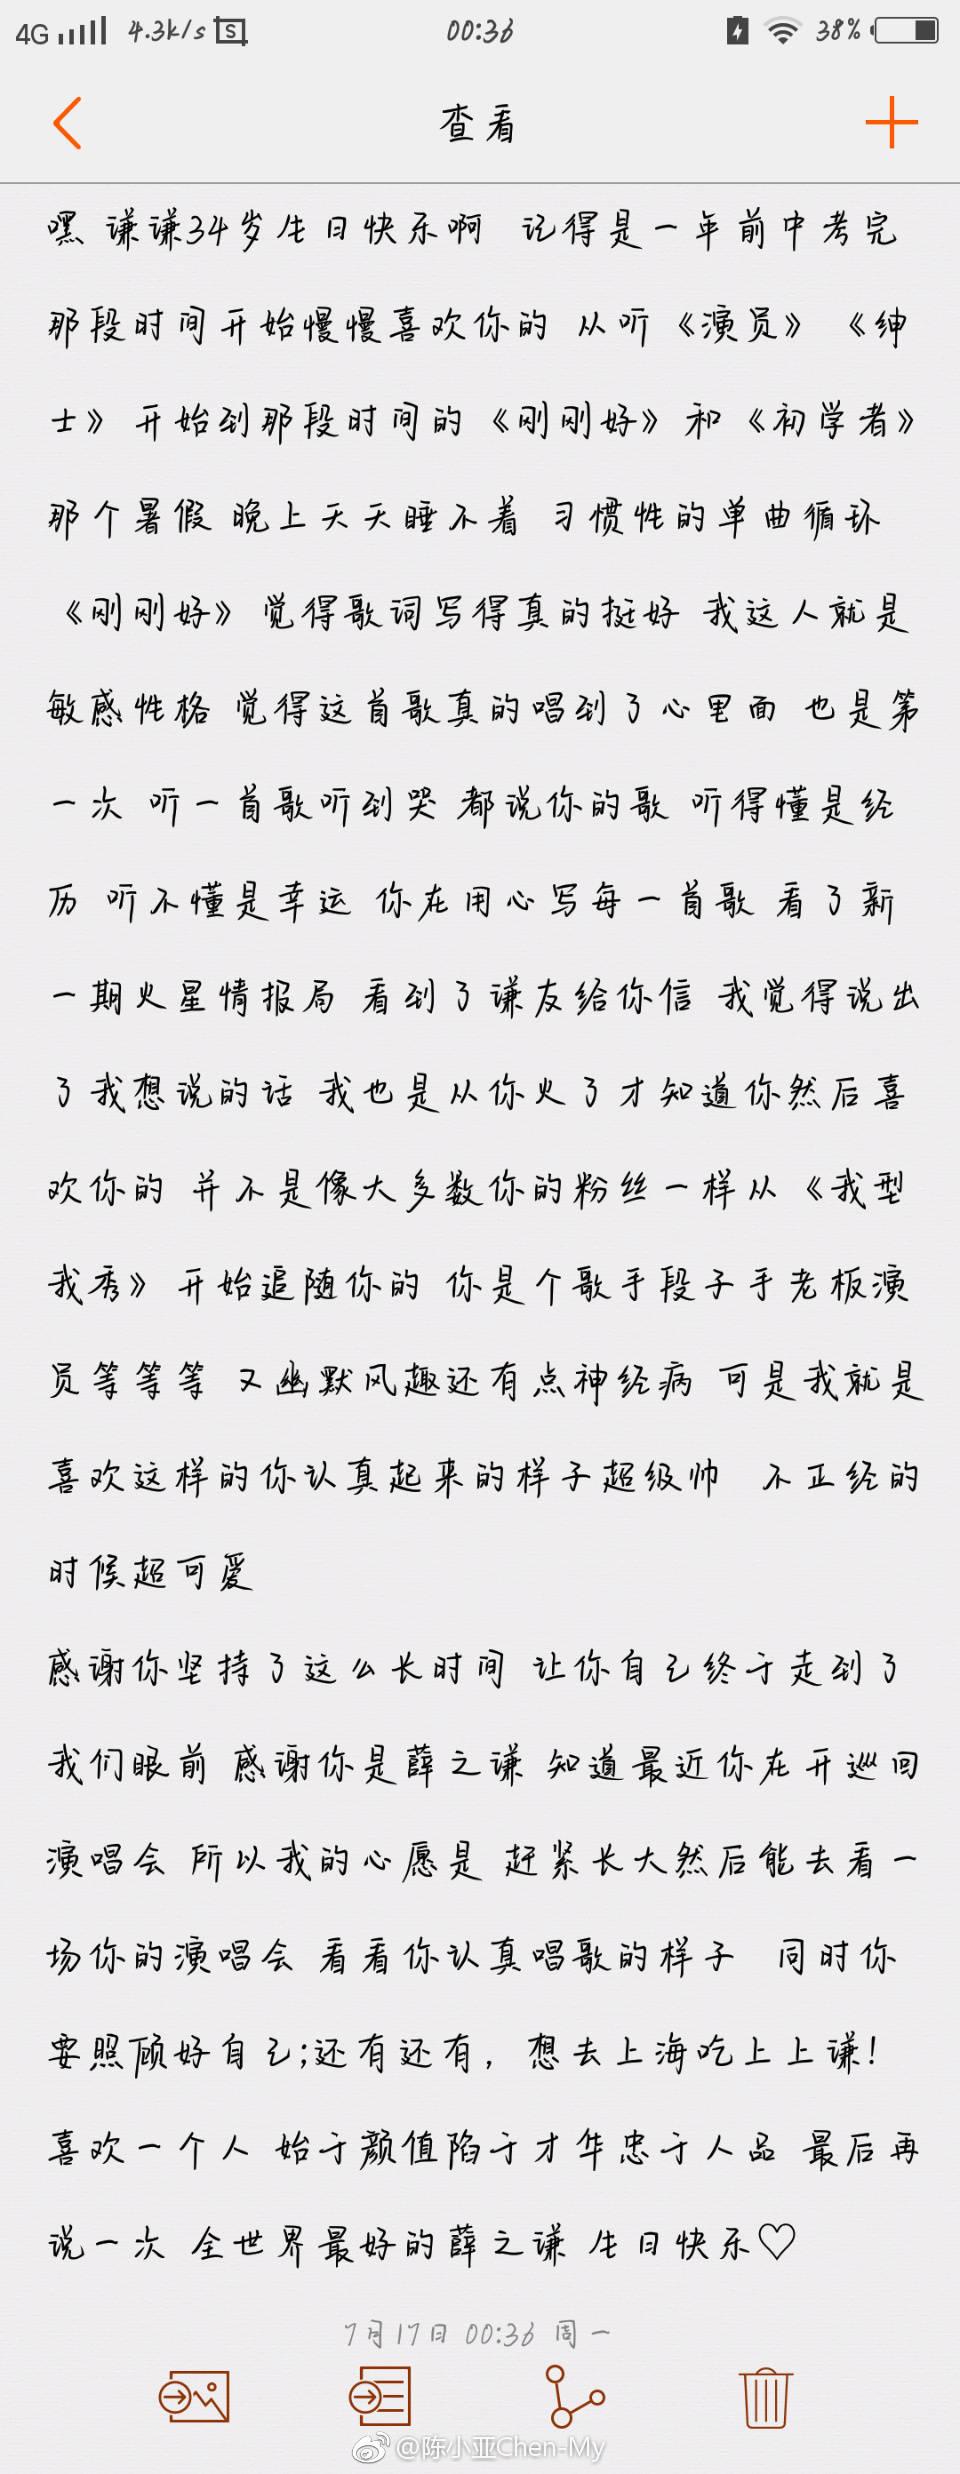 4G 4.3k/s 00:36 38%
查看
嘿 谦谦34岁生日快乐啊 记得是一年前中考完
那段时间开始慢慢喜欢你的 从听《演员》《绅
士》开始到那段时间的《刚刚好》和《初学者》
那个暑假 晚上天天睡不着 习惯性的单曲循环
《刚刚好》觉得歌词写得真的挺好 我这人就是
敏感性格 觉得这首歌真的唱到了心里面 也是第
一次 听一首歌听到哭 都说你的歌 听得懂是经
历 听不懂是幸运 你在用心写每一首歌 看了新
一期火星情报局 看到了谦友给你信 我觉得说出
了我想说的话 我也是从你火了才知道你然后喜
欢你的 并不是像大多数你的粉丝一样从《我型
我秀》开始追随你的 你是个歌手段子手老板演
员等等等 又幽默风趣还有点神经病 可是我就是
喜欢这样的你认真起来的样子超级帅 不正经的
时候超可爱
感谢你坚持了这么长时间 让你自己终于走到了
我们眼前 感谢你是薛之谦 知道最近你在开巡回
演唱会 所以我的心愿是 赶紧长大然后能去看一
场你的演唱会 看看你认真唱歌的样子 同时你
要照顾好自己;还有还有，想去上海吃上上谦!
喜欢一个人 始于颜值陷于才华忠于人品 最后再
说一次 全世界最好的薛之谦 生日快乐♡
7月17日 00:36 周一
@陈小亚Chen-My